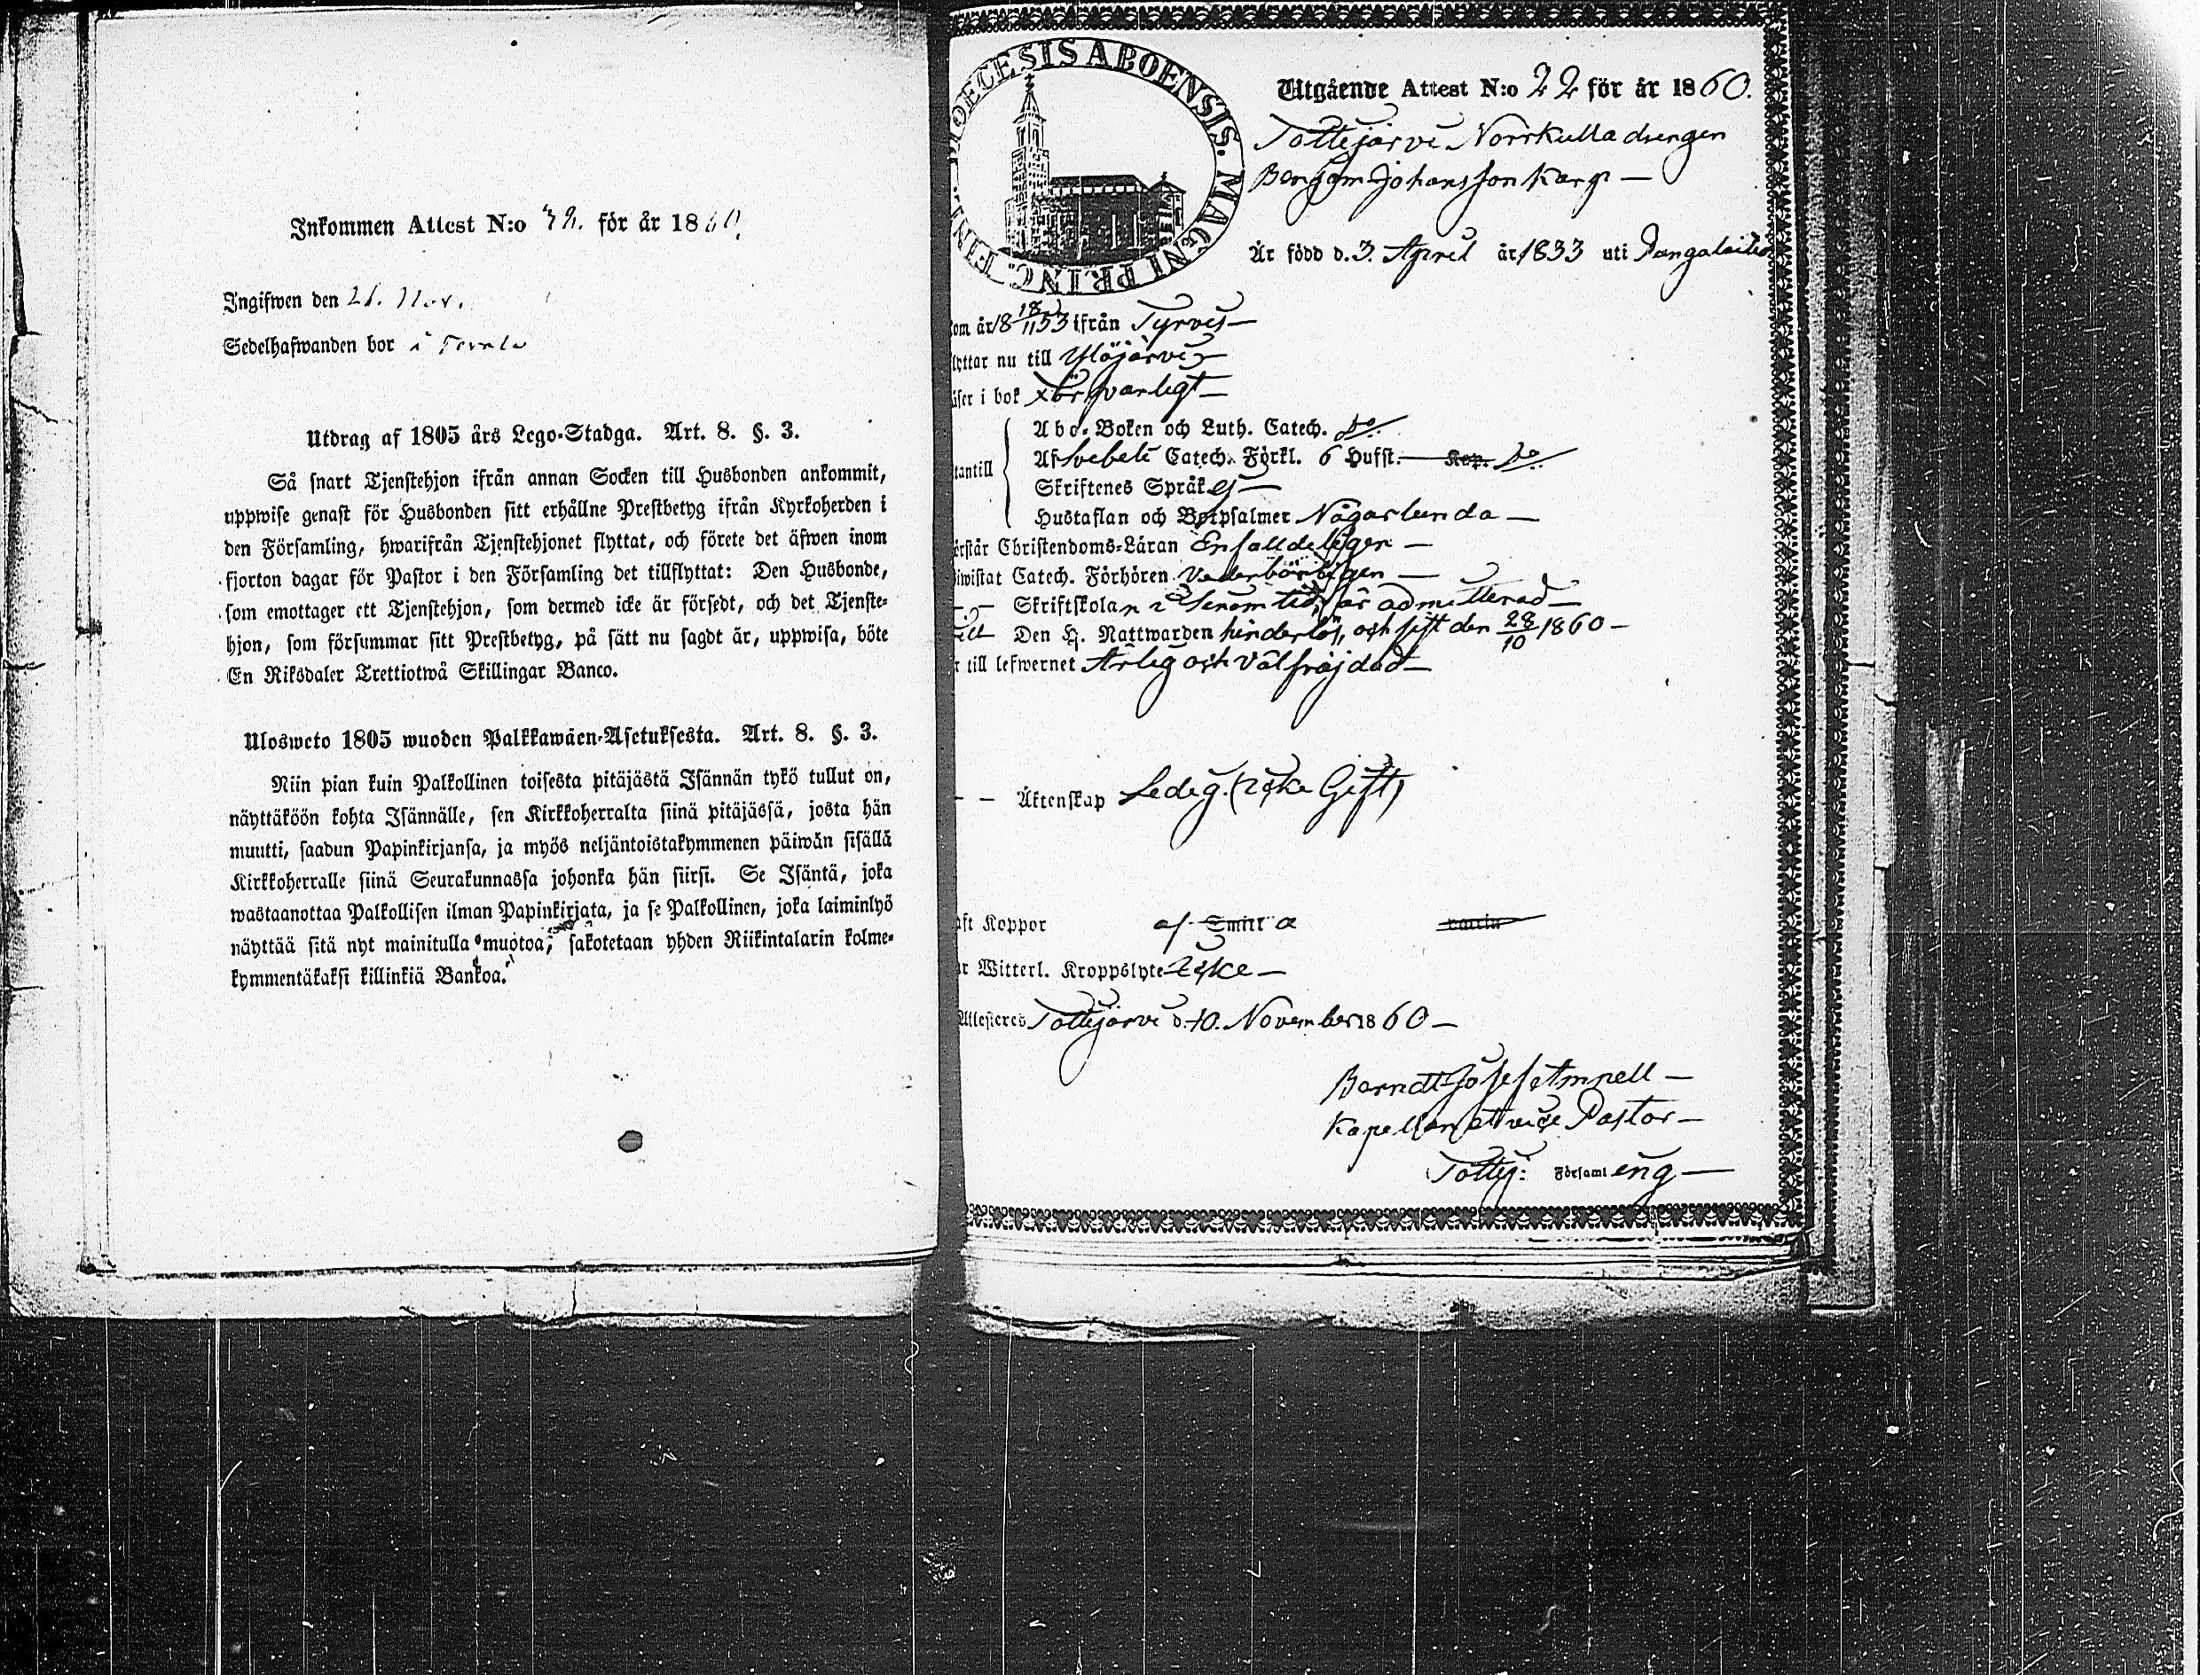 Inkommen Attest N:o 32. för år 1860.
Ingifwen den 21. Nov.
Sedelhafwanden bor i
Utdrag af 1805 års Lego-Stadga. Art. 8. §. 3.
Så snart Tjenstehjon ifrån annan Socken till Husbonden ankommit,
uppwise genast för Husbonden sitt erhållne Prestbetyg ifrån Kyrkoherden i
den Församling, hwarifrån Tjenstehjonet flyttat, och förete det äfwen inom
fjorton dagar för Pastor i den Församling det tillflyttat: Den Husbonde,
som emottager ett Tjenstehjon, som dermed icke är försedt, och det Tjenste-
hjon, som försummar sitt Prestbetyg, på sätt nu sagdt är, uppwisa, böte
En Riksdaler Trettiotwå Skillingar Banco.
Ulosweto 1805 wuoden Palkkawäen-Asetuksesta. Art. 8. §. 3.
Niin pian kuin Palkollinen toisesta pitäjästä Isännän tykö tullut on,
näyttäköön kohta Isännälle, sen Kirkkoherralta siinä pitäjässä, josta hän
muutti, saadun Papinkirjansa, ja myös neljäntoistakymmenen päiwän sisällä
Kirkkoherralle siinä Seurakunnassa johonka hän siirsi. Se Isäntä, joka
wastaanottaa Palkollisen ilman Papinkirjata, ja se Palkollinen, joka laiminlyö
näyttää sitä nyt mainitulla muotoa, sakotetaan yhden Riikintalarin kolme-
kymmentäkaksi killinkiä Bankoa.
DIOECESIS ABOENSIS. MAGNI PRINC. FINL.
Utgående Attest N:o 22 för år 1860.
Tottijärvi Norrkulla drengen
Benjam Johansson Karp —
Är född d. 3. April år 1833 uti
om år 18 18/11 53 ifrån Tyrvis —
lyttar nu till Ylöjärvi —
äser i bok försvarligt —
Abc-Boken och Luth. Catech. do.
Af Svebeli Catech. Förkl. 6 Hufst. — Kap. do.
tantill
Skriftenes Språk ej —
Hustaflan och Botpsalmer Någorlunda —
erstår Christendoms-Läran Enfalldeligen —
iwistat Catech. Förhören Vederbörligen —
— Skriftskolan i sinom tid, är admitterad —
till Den H. Nattwarden hinderlös, och sist den 28/10 1860 —
r till lefwernet Ärlig och Välfräjdad —
— — Äktenskap Ledig. (icke Gift)
aft Koppor af Smitta vaccin
ar Witterl. Kroppslyte Icke —
Attesteres Tottijärvi d. 10. November 1860 —
Berndt Josef Amnell —
Kapellan et vice Pastor —
Tottij: Församling —